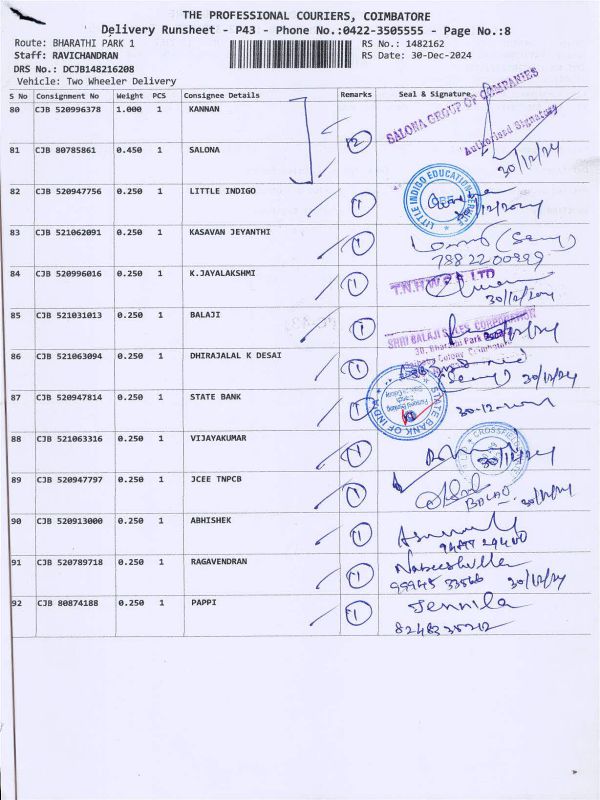 THE PROFESSIONAL COURIERS, COIMBATORE
Delivery Runsheet - P43 - Phone No.:0422-3505555 - Page No.:8
Route: BHARATHI PARK 1
RS No.: 1482162
Staff: RAVICHANDRAN
RS Date: 30-Dec-2024
DRS No.: DCJB148216208
Vehicle: Two Wheeler Delivery
S No Consignment No Weight PCS Consignee Details Remarks Seal & Signature
80 CJB 520996378 1.000 1 KANNAN
SALONA GROUP OF COMPANIES
Authorised Signatory
2
81 CJB 80785861 0.450 1 SALONA
30/12/24
82 CJB 520947756 0.250 1 LITTLE INDIGO 1
LITTLE INDIGO EDUCATION SERVICE
30/12/2024
83 CJB 521062091 0.250 1 KASAVAN JEYANTHI 1
7882200999
84 CJB 520996016 0.250 1 K.JAYALAKSHMI 1
30/12/2024
85 CJB 521031013 0.250 1 BALAJI 1
SHRI BALAJI SALES CORPORATION
30, Bharathi Park
86 CJB 521063094 0.250 1 DHIRAJALAL K DESAI 1
30/12/24
87 CJB 520947814 0.250 1 STATE BANK 1
STATE BANK OF INDIA
88 CJB 521063316 0.250 1 VIJAYAKUMAR 1
30/12/24
89 CJB 520947797 0.250 1 JCEE TNPCB 1
30/12/24
90 CJB 520913000 0.250 1 ABHISHEK 1
91 CJB 520789718 0.250 1 RAGAVENDRAN 1
99945 33566 30/12/24
92 CJB 80874188 0.250 1 PAPPI 1
Jennila